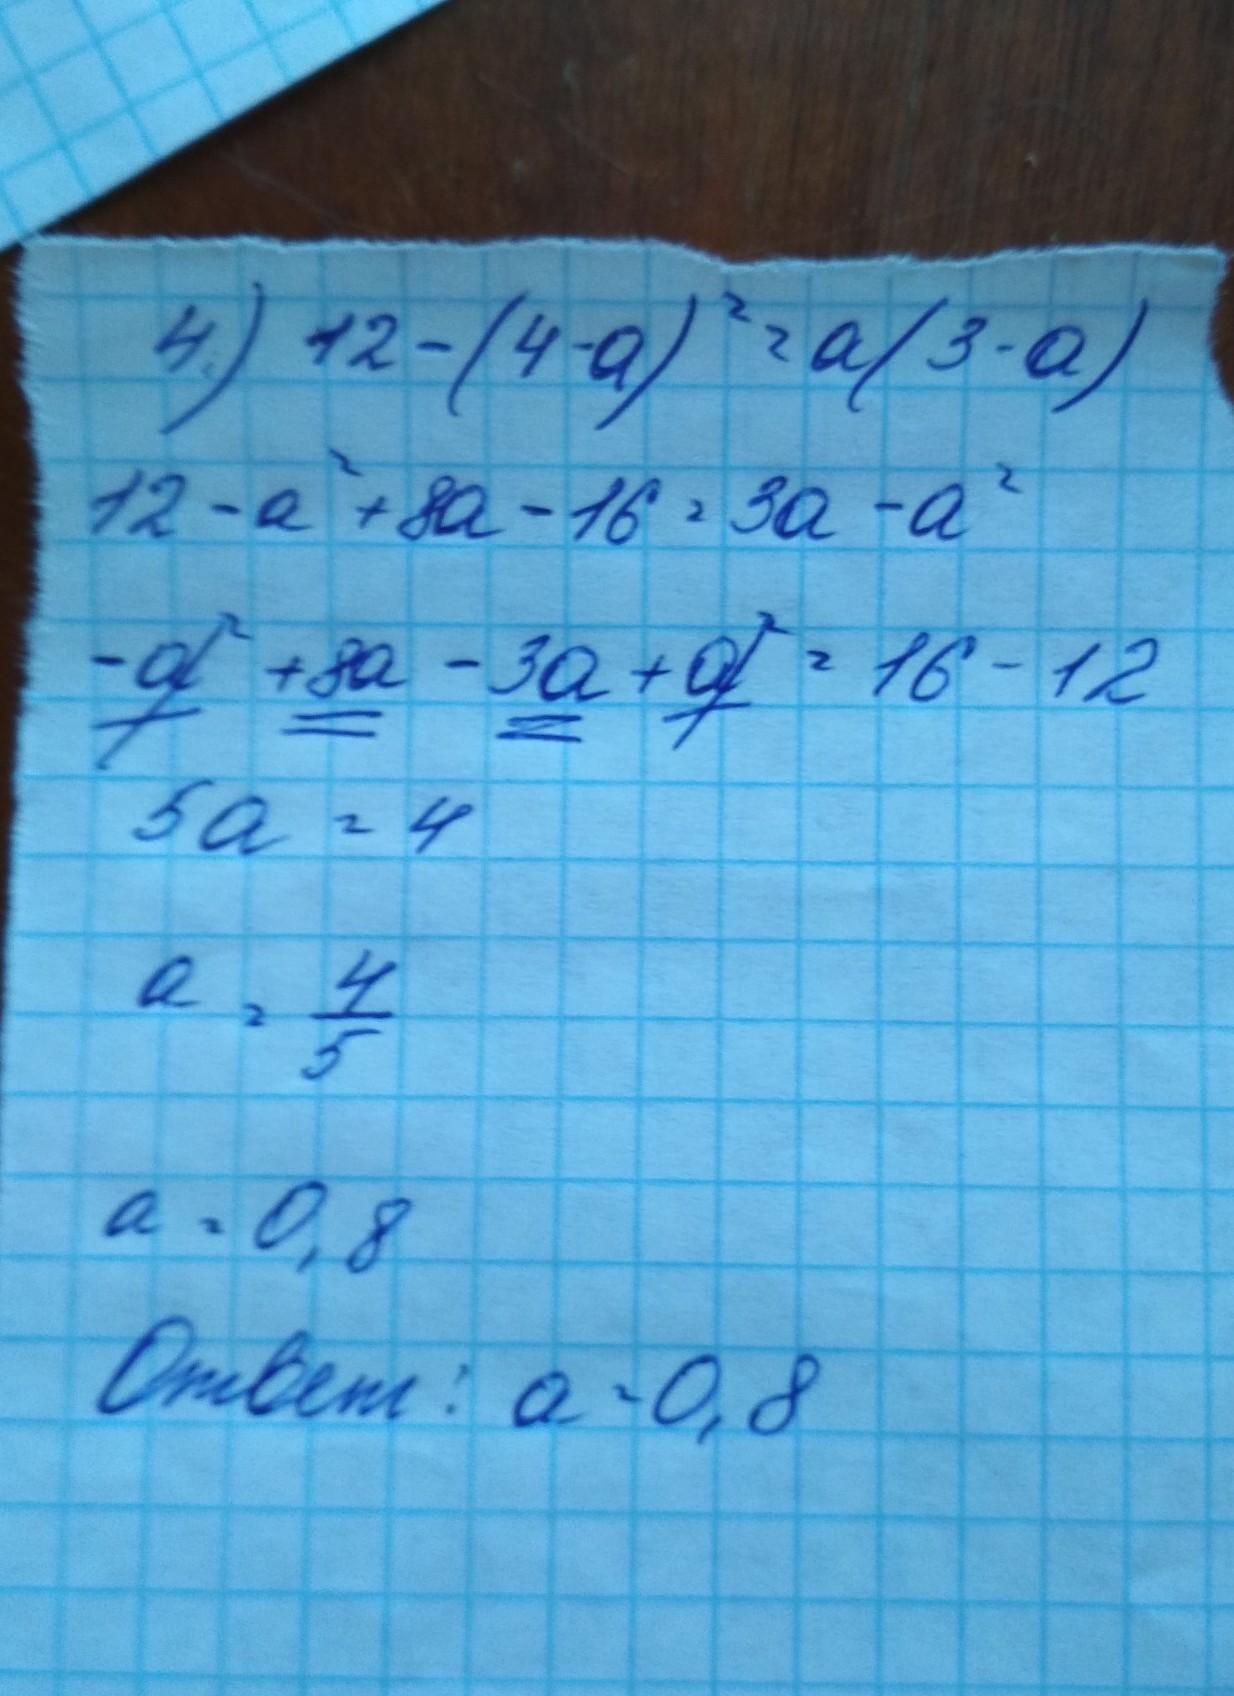 4.) 12-(4-a)² = a(3-a)
12 - a² + 8a - 16 = 3a - a²
-a² + 8a - 3a + a² = 16 - 12
5a = 4
a = 4/5
a = 0,8
Ответ: a = 0,8